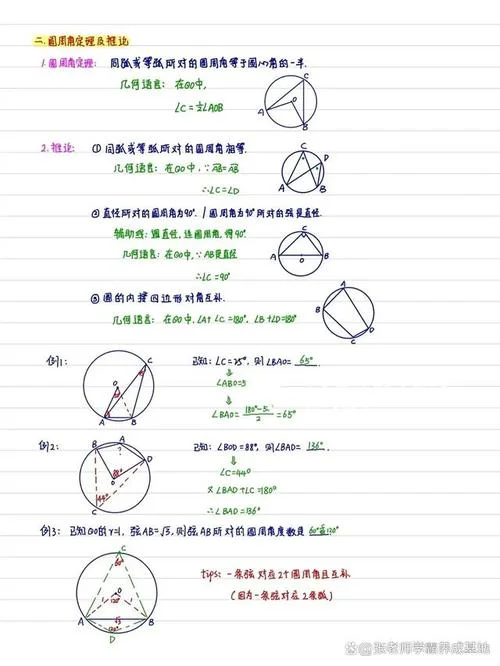 二.圆周角定理及推论
1.圆周角定理: 同弧或等弧所对的圆周角等于圆心角的一半.
几何语言: 在⊙O中,
∠C=½∠AOB
C
A
O
B
2.推论: ①同弧或等弧所对的圆周角相等.
几何语言: 在⊙O中,∵AB=AB
∴∠C=∠D
C
D
A
B
②直径所对的圆周角为90°. / 圆周角为90°所对的弦是直径.
辅助线: 遇直径,连圆周角,得90°.
几何语言: 在⊙O中,∵AB是直径
∴∠C=90°
C
A
O
B
③圆的内接四边形对角互补.
几何语言: 在⊙O中,∠A+∠C=180°,∠B+∠D=180°
A
B
C
D
例1:
已知:∠C=25°,则∠BAO= 65° .
∠ABO=5
∠BAO= (180°-5)/2 =65°
C
O
A
B
例2:
已知:∠BOD=88°,则∠BAD= 136° .
∠C=44°
又∠BAD+∠C=180°
∴∠BAD=136°
B
A
?
D
88°
O
44°
C
例3: 已知⊙O的r=1,弦AB=√3,则弦AB所对的圆周角度数是 60°或120°
tips: 一条弦对应2个圆周角且互补
(因为一条弦对应2条弧)
C
60°
O
120°
A
√3
B
120°
D
张老师学霸养成基地